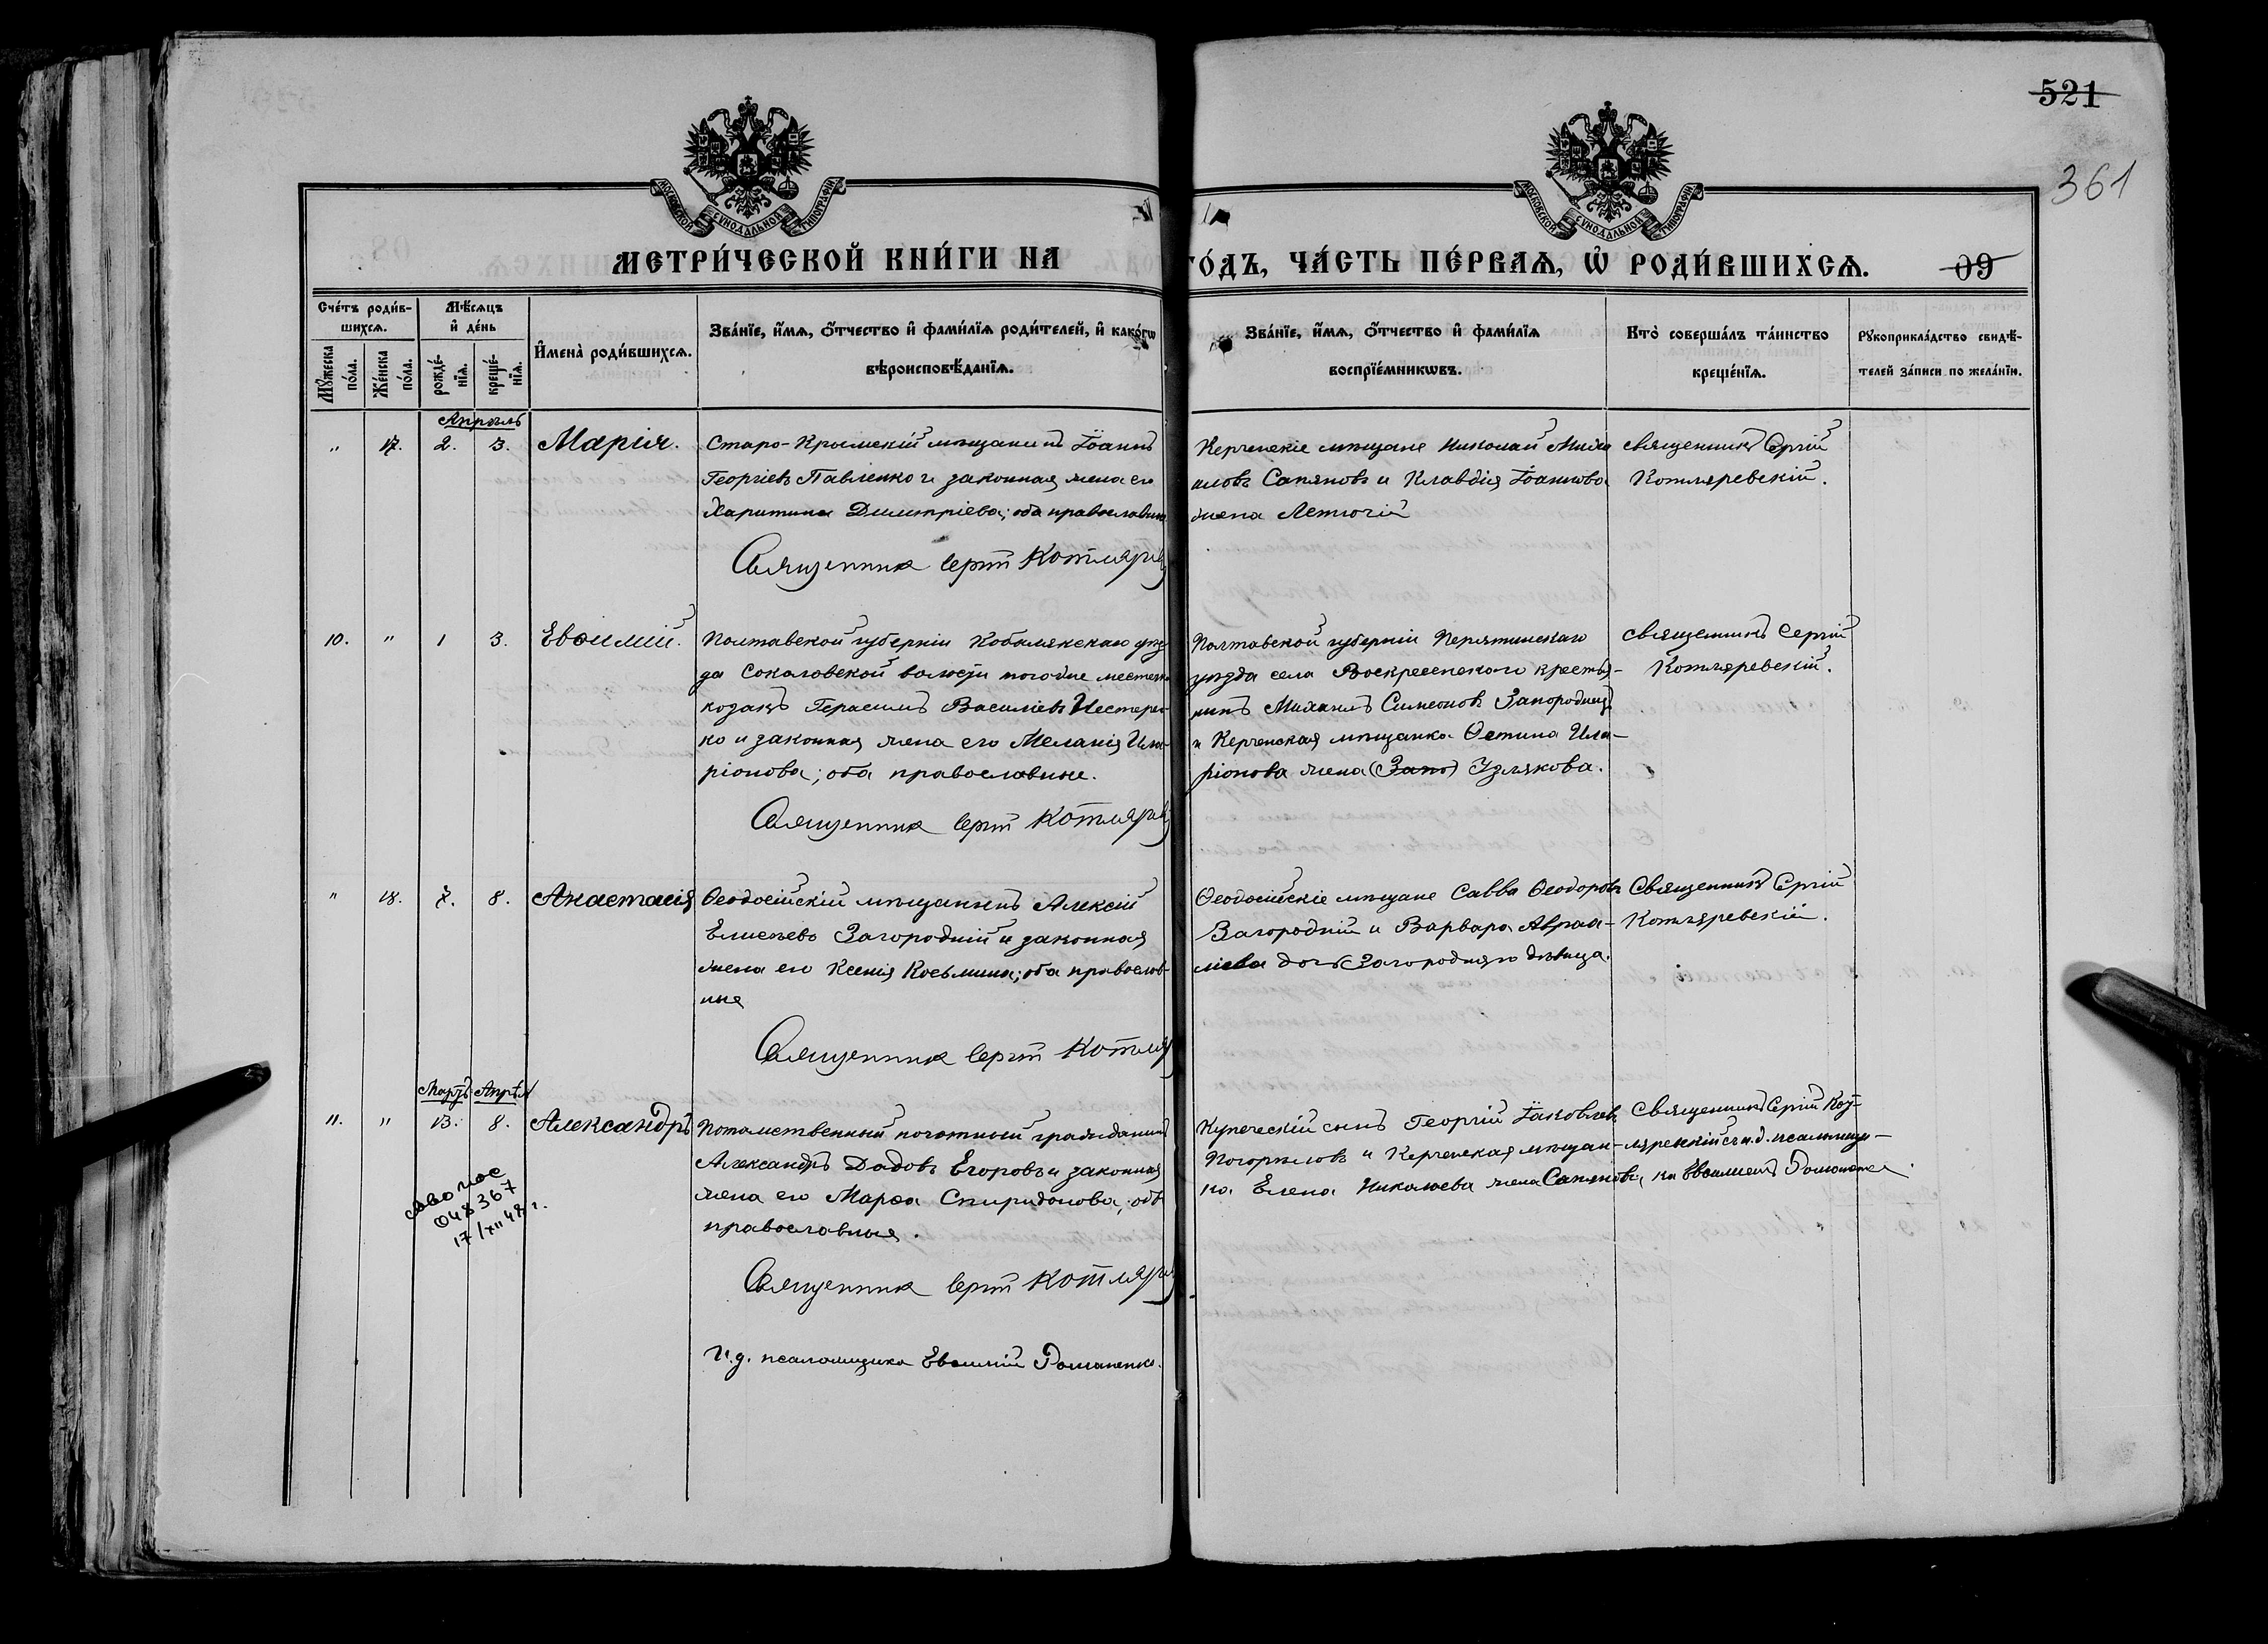 521
361
МОСКОВСКОЙ СѴНОДАЛЬНОЙ ТИПОГРАФІИ
МОСКОВСКОЙ СѴНОДАЛЬНОЙ ТИПОГРАФІИ
МЕТРИ́ЧЕСКОЙ КНИ́ГИ НА
ГО́ДЪ, ЧА́СТЬ ПЕ́РВАѦ, Ѡ҆ РОДИ́ВШИХСѦ.
09
Сче́тъ роди́в-
шихсѧ.
Мѣ́сѧцъ
и҆ де́нь
Мꙋ́жеска
по́ла.
Же́нска
по́ла.
рожде́-
нїѧ.
креще́-
нїѧ.
И҆мена̀ роди́вшихсѧ.
Зва́нїе, и҆́мѧ, ѻ҆́тчество и҆ фами́лїѧ роди́телей, и҆ како́гѡ
вѣроисповѣ́данїѧ.
Зва́нїе, и҆́мѧ, ѻ҆́тчество и҆ фами́лїѧ
воспрїе́мникѡвъ.
Кто̀ соверша́лъ та́инство
креще́нїѧ.
Рꙋкоприкла́дство свидѣ́-
телей за́писи по жела́нїю.
Апрѣль
" 17. 2. 3. Марія.
Старо-Крымскій мѣщанинъ Іоаннъ
Георгіевъ Павленко и законная жена его
Харитина Димитріева; оба православны
Священникъ Сергій Котлярев
Керченскіе мѣщане Николай Миха
иловъ Сапяновъ и Клавдія Іоаннова
жена Летючій
священникъ Сергій
Котляревскій.
10. " 1 3. Евѳимій.
Полтавской губерніи Кобелякскаго уѣз
да Соколовской волости
козакъ Герасимъ Василіевъ Нестерен-
ко и законная жена его Меланія Ила-
ріонова; оба православные.
Священникъ Сергій Котлярев
Полтавской губерніи Пирятинскаго
уѣзда села Воскресенского крестья-
нинъ Михаилъ Симеоновъ Запорожецъ
и Керченская мѣщанка Ѳетина Ила-
ріонова жена (Запо) Узлякова.
священникъ Сергій
Котляревскій.
" 18. 7. 8. Анастасія
Ѳеодосійскій мѣщанинъ Алексій
Елисѣевъ Загородній и законная
жена его Ксенія Косьмина; оба православ-
ные
Священникъ Сергій Котляр
Ѳеодосійскіе мѣщане Савва Ѳеодоровъ
Загородній и Варвара Авраа-
міева дочь Загородняго дѣвица.
Священникъ Сергій
Котляревскій.
Мартъ Апрѣль
11. " 13. 8. Александръ
Потомственный почетный гражданинъ
Александръ Дадовъ Егоровъ и законная
жена его Марѳа Спиридонова, оба
православные.
Священникъ Сергій Котлярев
И.д. псаломщика Евѳимій Романенко.
Купеческій сынъ Георгій Іаковлевъ
Погорѣловъ и Керченская мѣщан-
ка Елена Николаева жена Сапянова
Священникъ Сергій Кот-
ляревскій съ и.д. псаломщи-
ка Евѳиміемъ Романенко.
048367
17/XII 48 г.